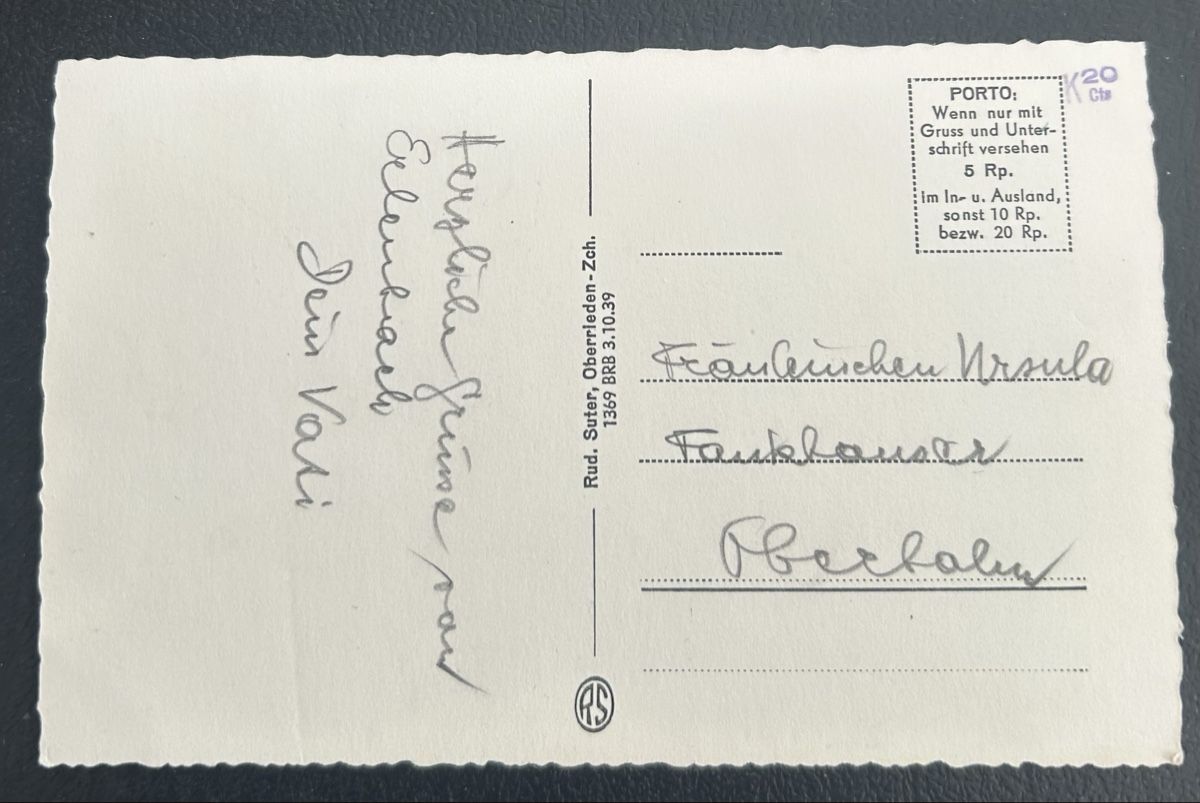 Herzliche Grüsse von
Erlenbach
Dein Vati
Rud. Suter, Oberrieden-Zch.
1369 BRB 3.10.39
RS
PORTO:
Wenn nur mit
Gruss und Unter-
schrift versehen
5 Rp.
im In- u. Ausland,
sonst 10 Rp.
bezw. 20 Rp.
K 20
Cts
Fräuleinchen Ursula
Fankhauser